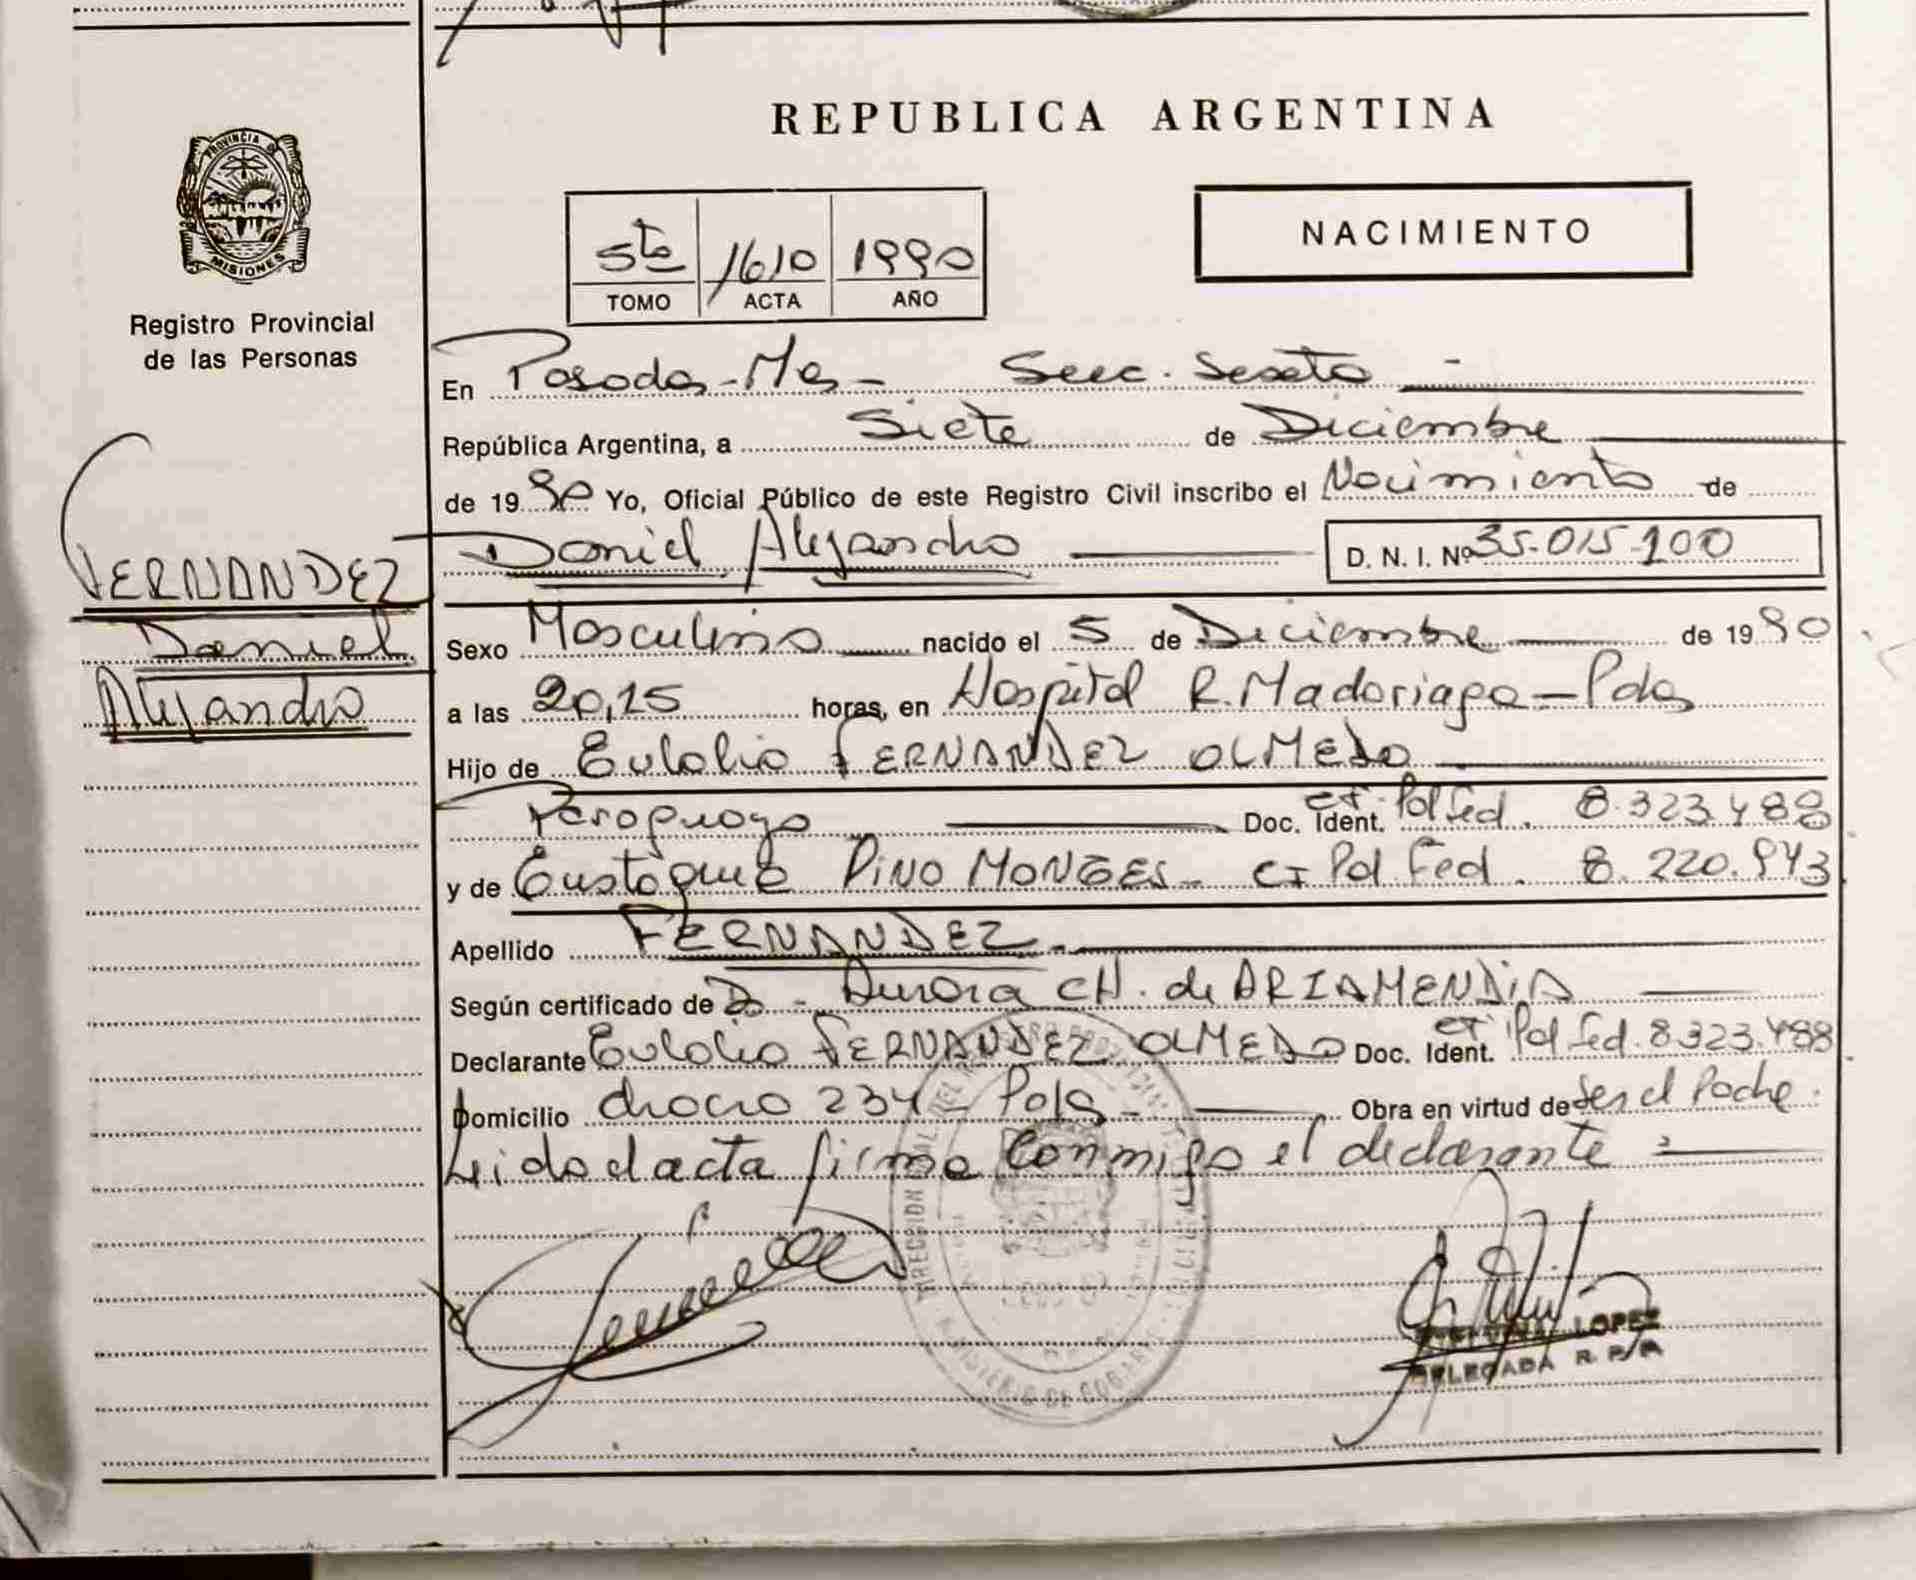 REPUBLICA ARGENTINA
PROVINCIA DE
MISIONES
Registro Provincial
de las Personas
NACIMIENTO
5to 1610 1990
TOMO ACTA AÑO
En Posadas-Mes- Secc. Sexta
República Argentina, a Siete de Diciembre
de 1990 Yo, Oficial Público de este Registro Civil inscribo el Nacimiento de
Daniel Alejandro D. N. I. Nº 35.015.100
FERNANDEZ
Daniel
Alejandro
Sexo Masculino nacido el 5 de Diciembre de 1990
a las 20,15 horas, en Hospital R. Madariaga - Pdas
Hijo de Eulalio FERNANDEZ OLMEDO
Paraguayo Doc. Ident. CI. Pol Fed. 8.323.488
y de Eustaquia PINO MONGES - CI Pol Fed. 8.220.943
Apellido FERNANDEZ.-
Según certificado de D. - Aurora CH. de ARIAMENDIA
Declarante Eulalio FERNANDEZ OLMEDO Doc. Ident. CI. Pol Fed. 8.323.488
Domicilio 234 - Pdas - Obra en virtud de Ser el Padre.
Leida el acta firma conmigo el declarante
LOPEZ
DELEGADA R. P/P.